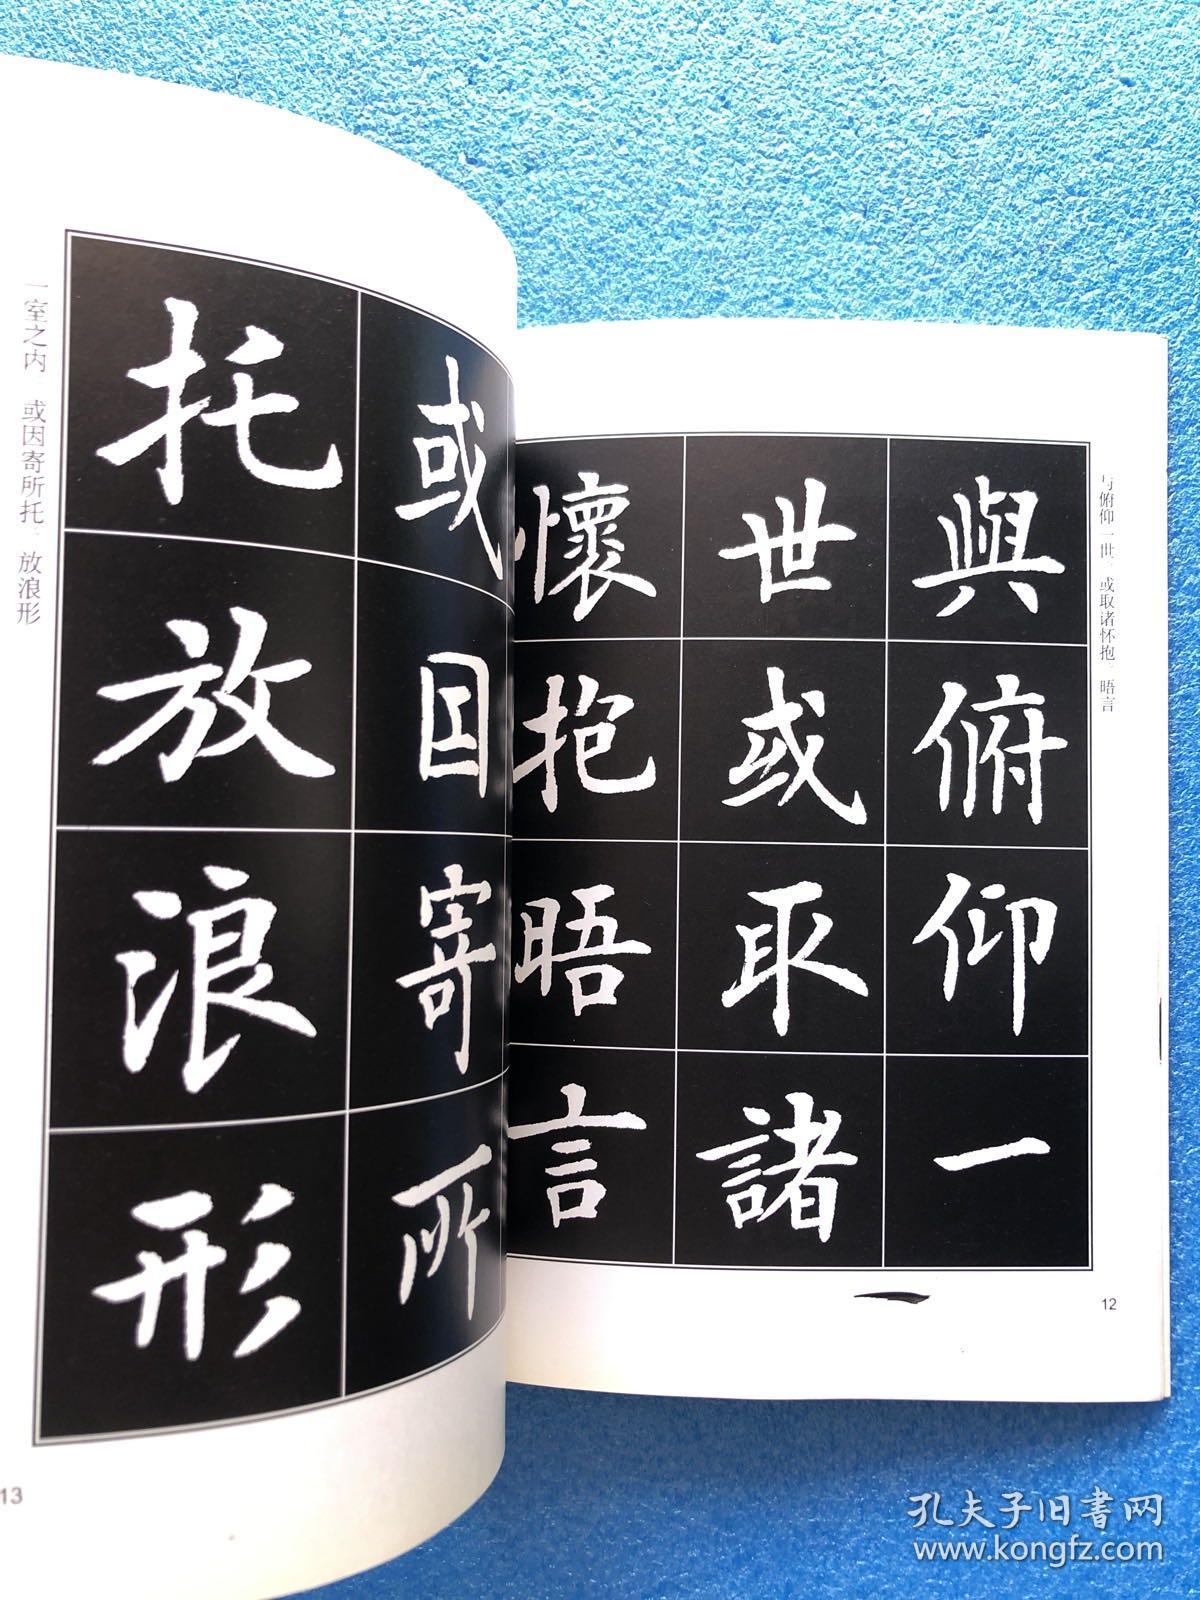 與俯仰一
世或取諸
懷抱晤言
与俯仰一世。或取诸怀抱。晤言
12
或因寄所
托放浪形
一室之内 或因寄所托。放浪形
13
孔夫子旧书网
www.kongfz.com